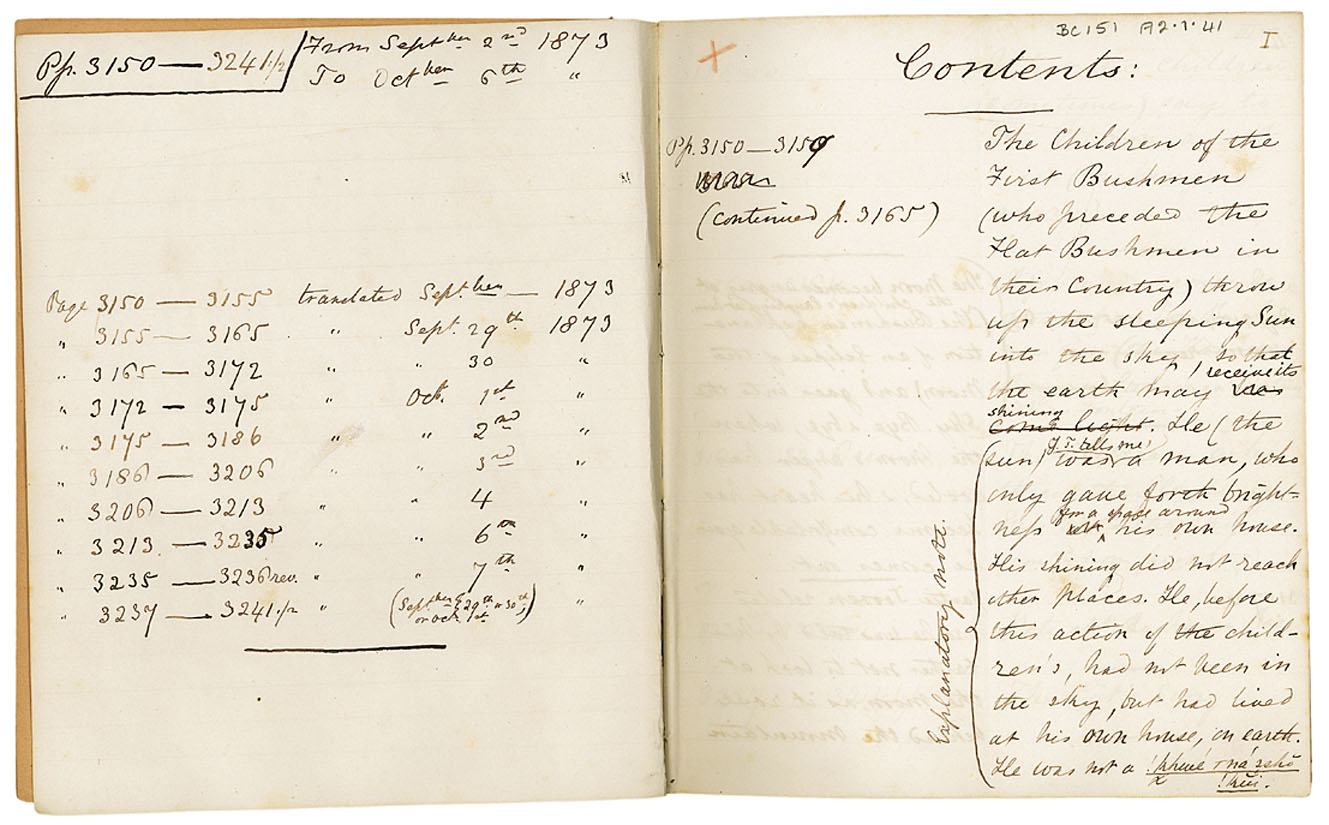 Pp. 3150 — 3241½
From Septber 2nd 1873
To Octber 6th "
Page 3150 — 3155 translated Septber — 1873
" 3155 — 3165 " Sept. 29th 1873
" 3165 — 3172 " " 30 "
" 3172 — 3175 " Oct. 1st "
" 3175 — 3186 " " 2nd "
" 3186 — 3206 " 3rd "
" 3206 — 3213 " " 4 "
" 3213 — 3235 " " 6th "
" 3235 — 3236 rev. " " 7th "
" 3237 — 3241½ " (Septber 29th or 30th, "
or Oct. 1st)
BC151 A2.1.41
I
Contents:
Pp. 3150 — 3159
(continued p. 3165)
The Children of the
First Bushmen
(who preceded the
Flat Bushmen in
their Country) throw
up the sleeping Sun
into the sky, so that
the earth may receive its
shining
come light. He (the
sun) (J.T. tells me) was a man, who
only gave forth bright-
ness for a space around his own house.
His shining did not reach
other places. He, before
this action of the child-
ren's, had not been in
the sky, but had lived
at his own house, on earth.
He was not a
Explanatory note.